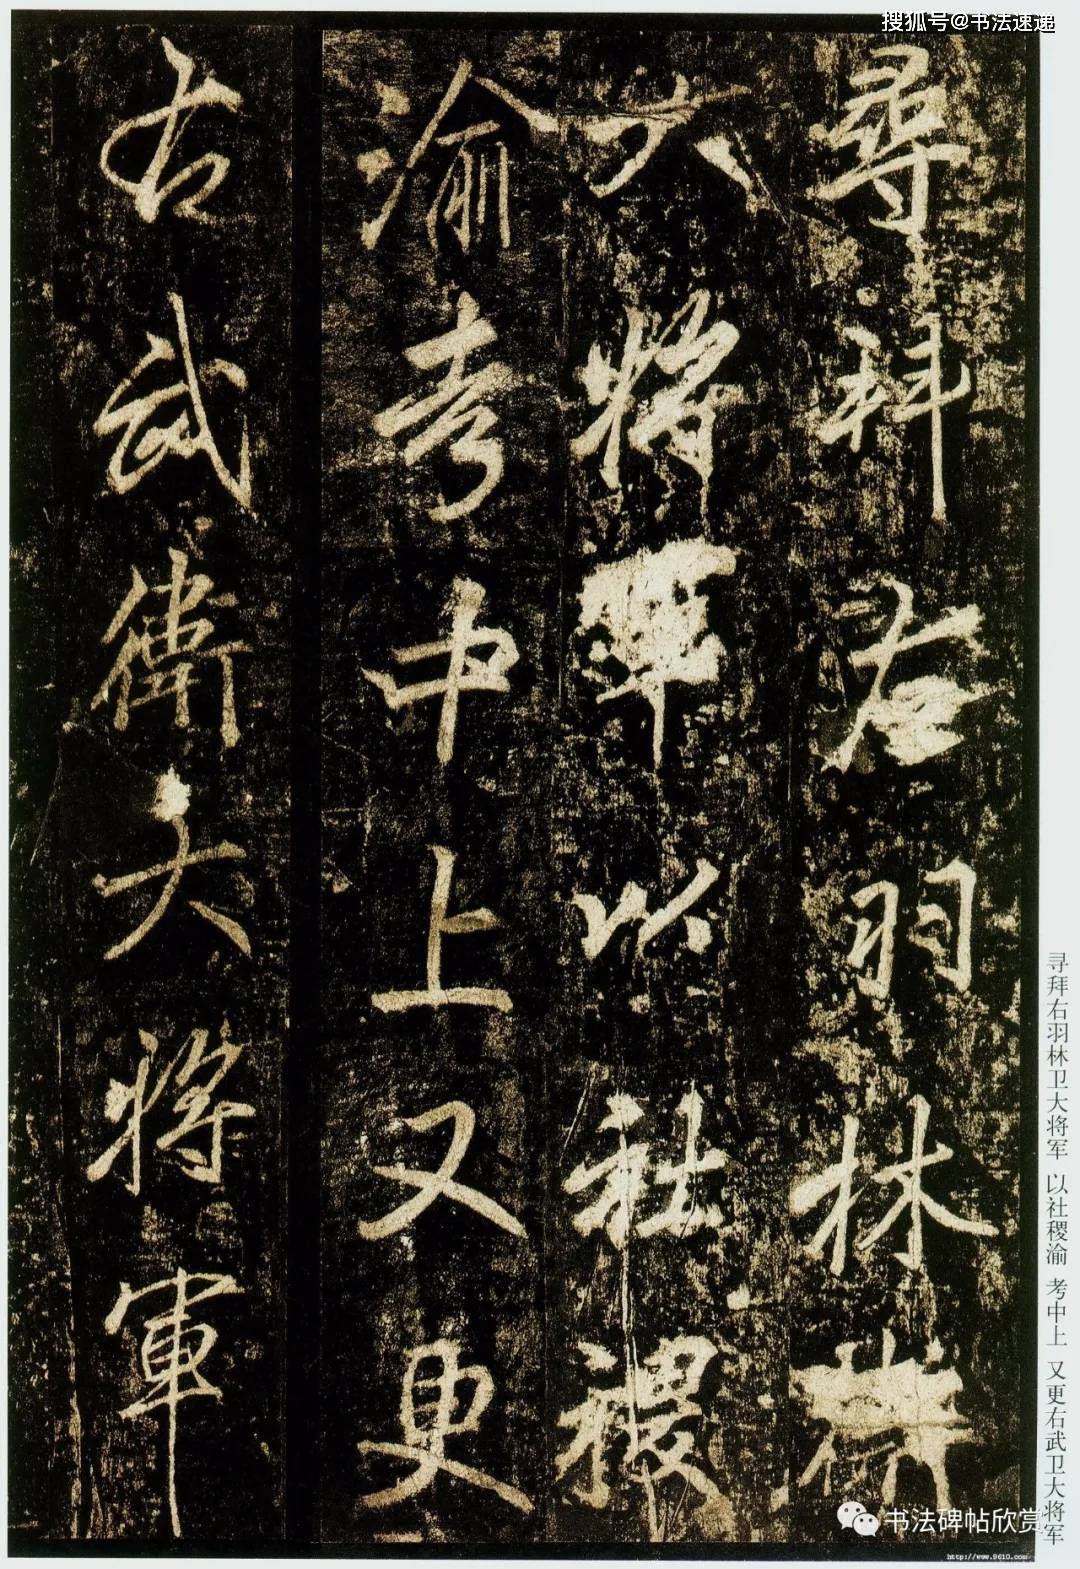 搜狐号@书法速递
尋拜右羽林衛
大將軍以社稷
渝考中上又更
右武衛大將軍
寻拜右羽林卫大将军 以社稷渝 考中上 又更右武卫大将军
书法碑帖欣赏
http://www.9610.com